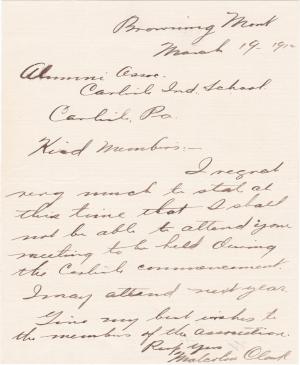 Browning Mont
March 19 - 191
Alumni Asso.
Carlisle Ind. School
Carlisle, Pa.
Kind Members:-
I regret
very much to state at
this time that I shall
not be able to attend your
meeting to be held during
the Carlisle commencement.
I may attend next year
Give my best wishes to
the members of the association.
Resp Yours
Malcolm Clark